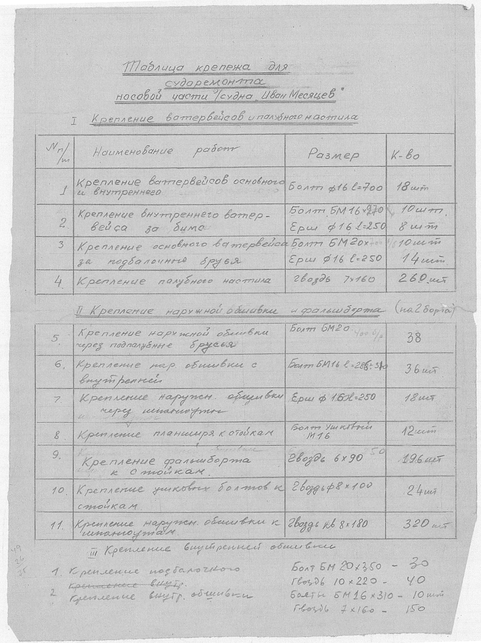 Таблица крепежа для
судоремонта
носовой части "судна Иван Месяцев"
I Крепление ватервейсов и палубного настила
№ п/п Наименование работ Размер К-во
1 Крепление ваттервейсов основного Болт ф16 l=700 18 шт
и внутреннего
2 Крепление внутреннего ватер- Болт БМ16× 10 шт.
вейса за бимс Ерш ф16 l=250 8 шт
3 Крепление основного ватервейса Болт БМ20× 10 шт
за подбалочные брусья Ерш ф16 l=250 14 шт
4. Крепление палубного настила Гвоздь 7×160 260 шт
II Крепление наружной обшивки и фальшборта (на 2 борта)
5. Крепление наружной обшивки Болт БМ20 38
через подпалубные брусья
6. Крепление нар обшивки с Болт БМ16 36 шт
внутренней
7 Крепление наружн. обшивки Ерш ф 16 l=250 18 шт
через шпангоуты
8 Крепление планширя к стойкам Болт ушковый 12 шт
М16
9. Крепление фальшборта Гвоздь 6×90 196 шт
к стойкам
10 Крепление ушковых болтов к Гвоздь ф8×100 24 шт
стойкам
11. Крепление наружн. обшивки к Гвоздь кв 8×180 320 шт
шпангоутам
III Крепление внутренней обшивки
1. Крепление подбалочного Болт БМ 20×350 – 30
Крепление внутр. Гвоздь 10×220 – 40
2 Крепление внутр. обшивки Болты БМ16×310 – 10 шт
Гвоздь 7×160 – 150